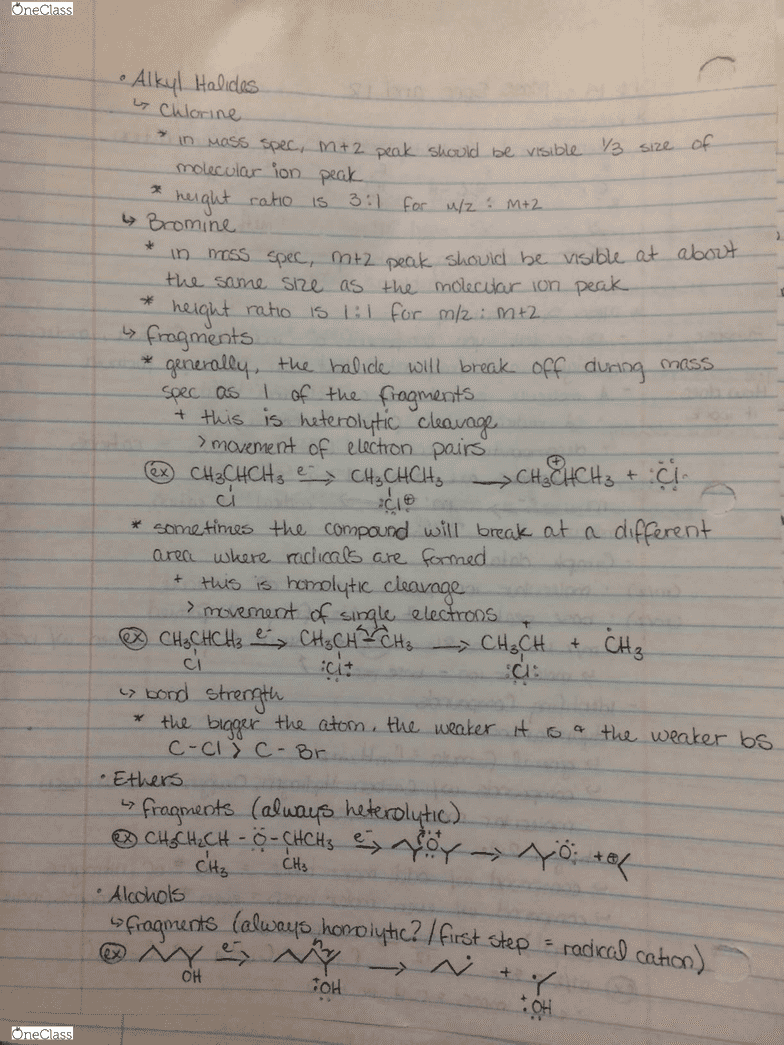 OneClass
• Alkyl Halides
↳ Chlorine
* in mass spec, m+2 peak should be visible 1/3 size of
molecular ion peak
* height ratio is 3:1 for m/z : m+2
↳ Bromine
* in mass spec, m+2 peak should be visible at about
the same size as the molecular ion peak
* height ratio is 1:1 for m/z : m+2
↳ fragments
* generally, the halide will break off during mass
spec as 1 of the fragments
+ this is heterolytic cleavage
> movement of electron pairs
ex CH3CHCH3 e⁻→ CH3CHCH3 → CH3CHCH3 + :Cl·
Cl :Cl⊕
* sometimes the compound will break at a different
area where radicals are formed
+ this is homolytic cleavage
> movement of single electrons
ex CH3CHCH3 e⁻→ CH3CH-CH3 → CH3CH + ĊH3
Cl :Cl+ :Cl:
↳ bond strength
* the bigger the atom, the weaker it is & the weaker bs
C-Cl > C-Br
• Ethers
↳ fragments (always heterolytic)
ex CH3CH2CH-Ö-CHCH3 e⁻→ :O+ → O: + ⊕
CH3 CH3
• Alcohols
↳ fragments (always homolytic? / first step = radical cation)
ex e⁻→ → · + ·
OH +:OH +:OH
OneClass
OneClass